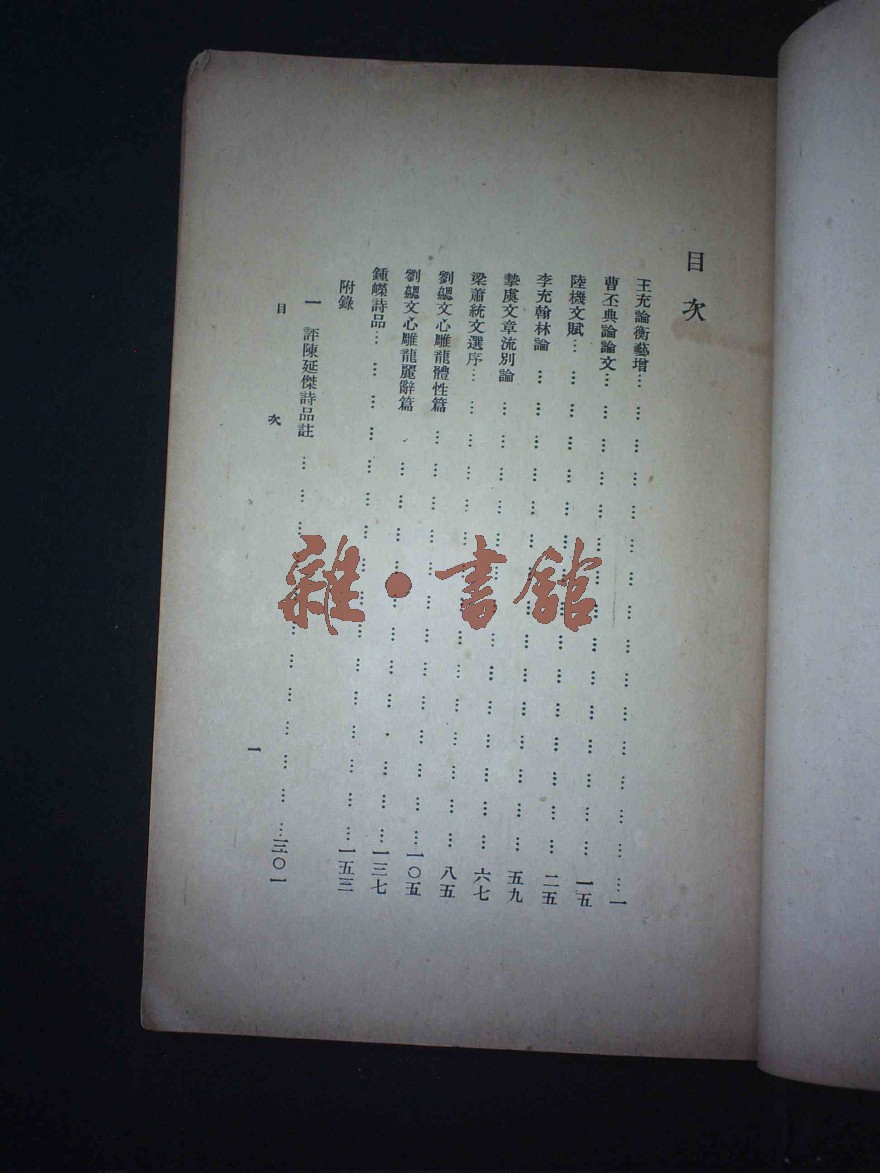 目次
王充論衡藝增……………………一
曹丕典論論文……………………一五
陸機文賦……………………二五
李充翰林論……………………五九
摯虞文章流別論……………………六七
梁蕭統文選序……………………八五
劉勰文心雕龍體性篇……………………一〇五
劉勰文心雕龍麗辭篇……………………一三七
鍾嶸詩品……………………一五三
附錄
一 評陳延傑詩品註……………………三〇一
目次
一
雜·書館